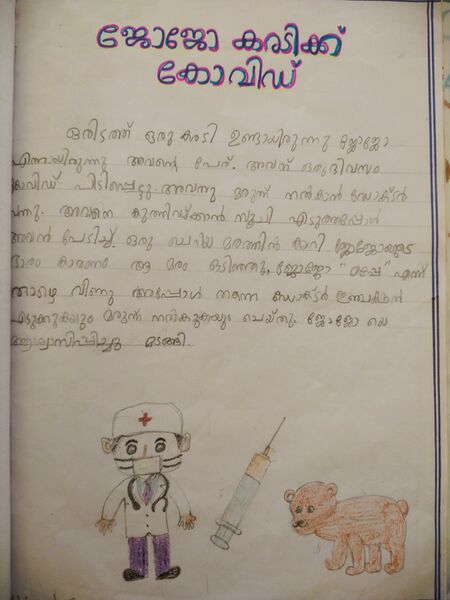 ജോജോ കരടിക്ക്
കോവിഡ്
ഒരിടത്ത് ഒരു കരടി ഉണ്ടായിരുന്നു ജോജോ
എന്നായിരുന്നു അവന്റെ പേര്. അവന് ഒരു ദിവസം
കോവിഡ് പിടിപ്പെട്ടു. അവന്നു മരുന്ന് നൽകാൻ ഡോക്ടർ
വന്നു. അവനെ കുത്തിവയ്ക്കാൻ സൂചി എടുത്തപ്പോൾ
അവൻ പേടിച്ച്. ഒരു ചെറിയ മരത്തിൻ കാറി ജോജോയുടെ
ഭാരം കാരണം ആ മരം ഒടിഞ്ഞു, ജോജോ "പ്പേ" എന്ന്
താഴെ വീണു അപ്പോൾ തന്നെ ഡോക്ടർ ഇഞ്ചക്ഷൻ
എടുക്കുകയും മരുന്ന് നൽകുകയും ചെയ്തു. ജോജോ യെ
ആശ്വാസിപ്പിച്ചു മടങ്ങി.